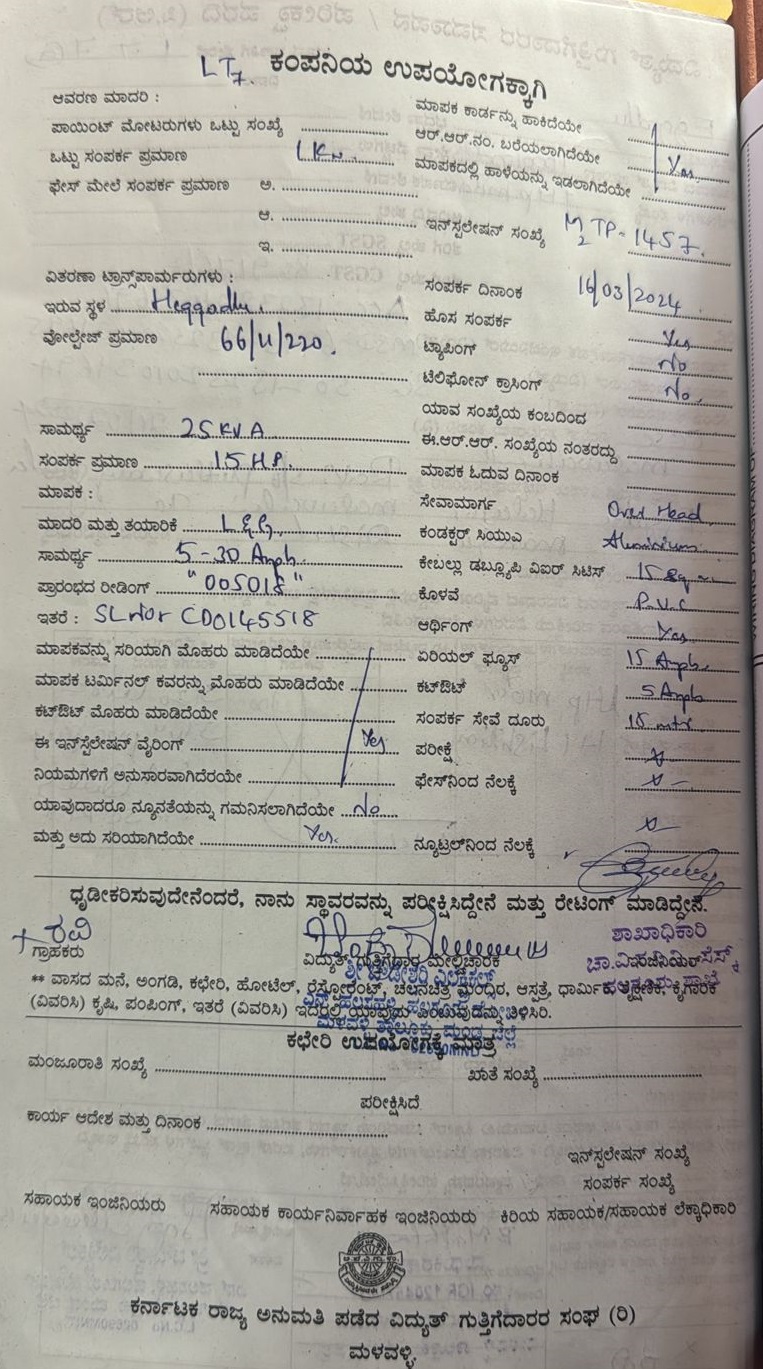 LT7 ಕಂಪನಿಯ ಉಪಯೋಗಕ್ಕಾಗಿ
ಆವರಣ ಮಾದರಿ :
ಪಾಯಿಂಟ್ ಮೋಟರುಗಳು ಒಟ್ಟು ಸಂಖ್ಯೆ
ಒಟ್ಟು ಸಂಪರ್ಕ ಪ್ರಮಾಣ
ಫೇಸ್ ಮೇಲೆ ಸಂಪರ್ಕ ಪ್ರಮಾಣ ಅ.
ಆ.
ಇ.
ವಿತರಣಾ ಟ್ರಾನ್ಸ್‌ಪಾರ್ಮರುಗಳು :
ಇರುವ ಸ್ಥಳ Heggadhu.
ವೋಲ್ಟೇಜ್ ಪ್ರಮಾಣ 66/11/220.
ಸಾಮರ್ಥ್ಯ 25 KVA
ಸಂಪರ್ಕ ಪ್ರಮಾಣ 15 HP.
ಮಾಪಕ :
ಮಾದರಿ ಮತ್ತು ತಯಾರಿಕೆ L&G,
ಸಾಮರ್ಥ್ಯ 5-30 Amph.
ಪ್ರಾರಂಭದ ರೀಡಿಂಗ್ "005018"
ಇತರೆ : SL NOr CD0145518
ಮಾಪಕವನ್ನು ಸರಿಯಾಗಿ ಮೊಹರು ಮಾಡಿದೆಯೇ
ಮಾಪಕ ಟರ್ಮಿನಲ್ ಕವರನ್ನು ಮೊಹರು ಮಾಡಿದೆಯೇ
ಕಟ್‌ಔಟ್ ಮೊಹರು ಮಾಡಿದೆಯೇ
ಈ ಇನ್‌ಸ್ಟೆಲೇಷನ್ ವೈರಿಂಗ್ Yes
ನಿಯಮಗಳಿಗೆ ಅನುಸಾರವಾಗಿದೆರಯೇ
ಯಾವುದಾದರೂ ನ್ಯೂನತೆಯನ್ನು ಗಮನಿಸಲಾಗಿದೆಯೇ No
ಮತ್ತು ಅದು ಸರಿಯಾಗಿದೆಯೇ Yes.
ಮಾಪಕ ಕಾರ್ಡನ್ನು ಹಾಕಿದೆಯೇ
ಆರ್.ಆರ್.ನಂ. ಬರೆಯಲಾಗಿದೆಯೇ Yes
ಮಾಪಕದಲ್ಲಿ ಹಾಳೆಯನ್ನು ಇಡಲಾಗಿದೆಯೇ
ಇನ್‌ಸ್ಟಲೇಷನ್ ಸಂಖ್ಯೆ M2TP-1457.
ಸಂಪರ್ಕ ದಿನಾಂಕ 16/03/2024
ಹೊಸ ಸಂಪರ್ಕ Yes
ಟ್ಯಾಪಿಂಗ್ No
ಟೆಲಿಫೋನ್ ಕ್ರಾಸಿಂಗ್ No.
ಯಾವ ಸಂಖ್ಯೆಯ ಕಂಬದಿಂದ
ಈ.ಆರ್.ಆರ್. ಸಂಖ್ಯೆಯ ನಂತರದ್ದು
ಮಾಪಕ ಓದುವ ದಿನಾಂಕ
ಸೇವಾಮಾರ್ಗ Over Head
ಕಂಡಕ್ಟರ್ ಸಿಯುಎ Aluminium
ಕೇಬಲ್ಲು ಡಬ್ಲ್ಯೂಪಿ ಎಐರ್ ಸಿಟಿಸ್ 15 Sq
ಕೊಳವೆ P.V.C
ಆರ್ಥಿಂಗ್ Yes
ಏರಿಯಲ್ ಫ್ಯೂಸ್ 15 Amph.
ಕಟ್‌ಔಟ್ 5 Amph
ಸಂಪರ್ಕ ಸೇವೆ ದೂರು 15 mtr
ಪರೀಕ್ಷೆ
ಫೇಸ್‌ನಿಂದ ನೆಲಕ್ಕೆ
ನ್ಯೂಟ್ರಲ್‌ನಿಂದ ನೆಲಕ್ಕೆ
ಧೃಡೀಕರಿಸುವುದೇನೆಂದರೆ, ನಾನು ಸ್ಥಾವರವನ್ನು ಪರೀಕ್ಷಿಸಿದ್ದೇನೆ ಮತ್ತು ರೇಟಿಂಗ್ ಮಾಡಿದ್ದೇನೆ.
ರವಿ
ಗ್ರಾಹಕರು ವಿದ್ಯುತ್ ಗುತ್ತಿಗೆದಾರ ಮೇಲ್ವಿಚಾರಕ
ಶಾಖಾಧಿಕಾರಿ
** ವಾಸದ ಮನೆ, ಅಂಗಡಿ, ಕಛೇರಿ, ಹೋಟೆಲ್, ರೆಸ್ಟೋರೆಂಟ್, ಚಲನಚಿತ್ರ ಮಂದಿರ, ಆಸ್ಪತ್ರೆ, ಧಾರ್ಮಿಕ, ಶೈಕ್ಷಣಿಕ, ಕೈಗಾರಿಕೆ
(ವಿವರಿಸಿ) ಕೃಷಿ, ಪಂಪಿಂಗ್, ಇತರೆ (ವಿವರಿಸಿ) ಇದರಲ್ಲಿ ಯಾವುದು ತಿಳಿಸಿರಿ.
ಕಛೇರಿ ಉಪಯೋಗಕ್ಕೆ ಮಾತ್ರ
ಮಂಜೂರಾತಿ ಸಂಖ್ಯೆ ಖಾತೆ ಸಂಖ್ಯೆ
ಪರೀಕ್ಷಿಸಿದೆ
ಕಾರ್ಯ ಆದೇಶ ಮತ್ತು ದಿನಾಂಕ
ಇನ್‌ಸ್ಟಲೇಷನ್ ಸಂಖ್ಯೆ
ಸಂಪರ್ಕ ಸಂಖ್ಯೆ
ಸಹಾಯಕ ಇಂಜಿನಿಯರು ಸಹಾಯಕ ಕಾರ್ಯನಿರ್ವಾಹಕ ಇಂಜಿನಿಯರು ಕಿರಿಯ ಸಹಾಯಕ/ಸಹಾಯಕ ಲೆಕ್ಕಾಧಿಕಾರಿ
ಕರ್ನಾಟಕ ರಾಜ್ಯ ಅನುಮತಿ ಪಡೆದ ವಿದ್ಯುತ್ ಗುತ್ತಿಗೆದಾರರ ಸಂಘ (ರಿ)
ಮಳವಳ್ಳಿ